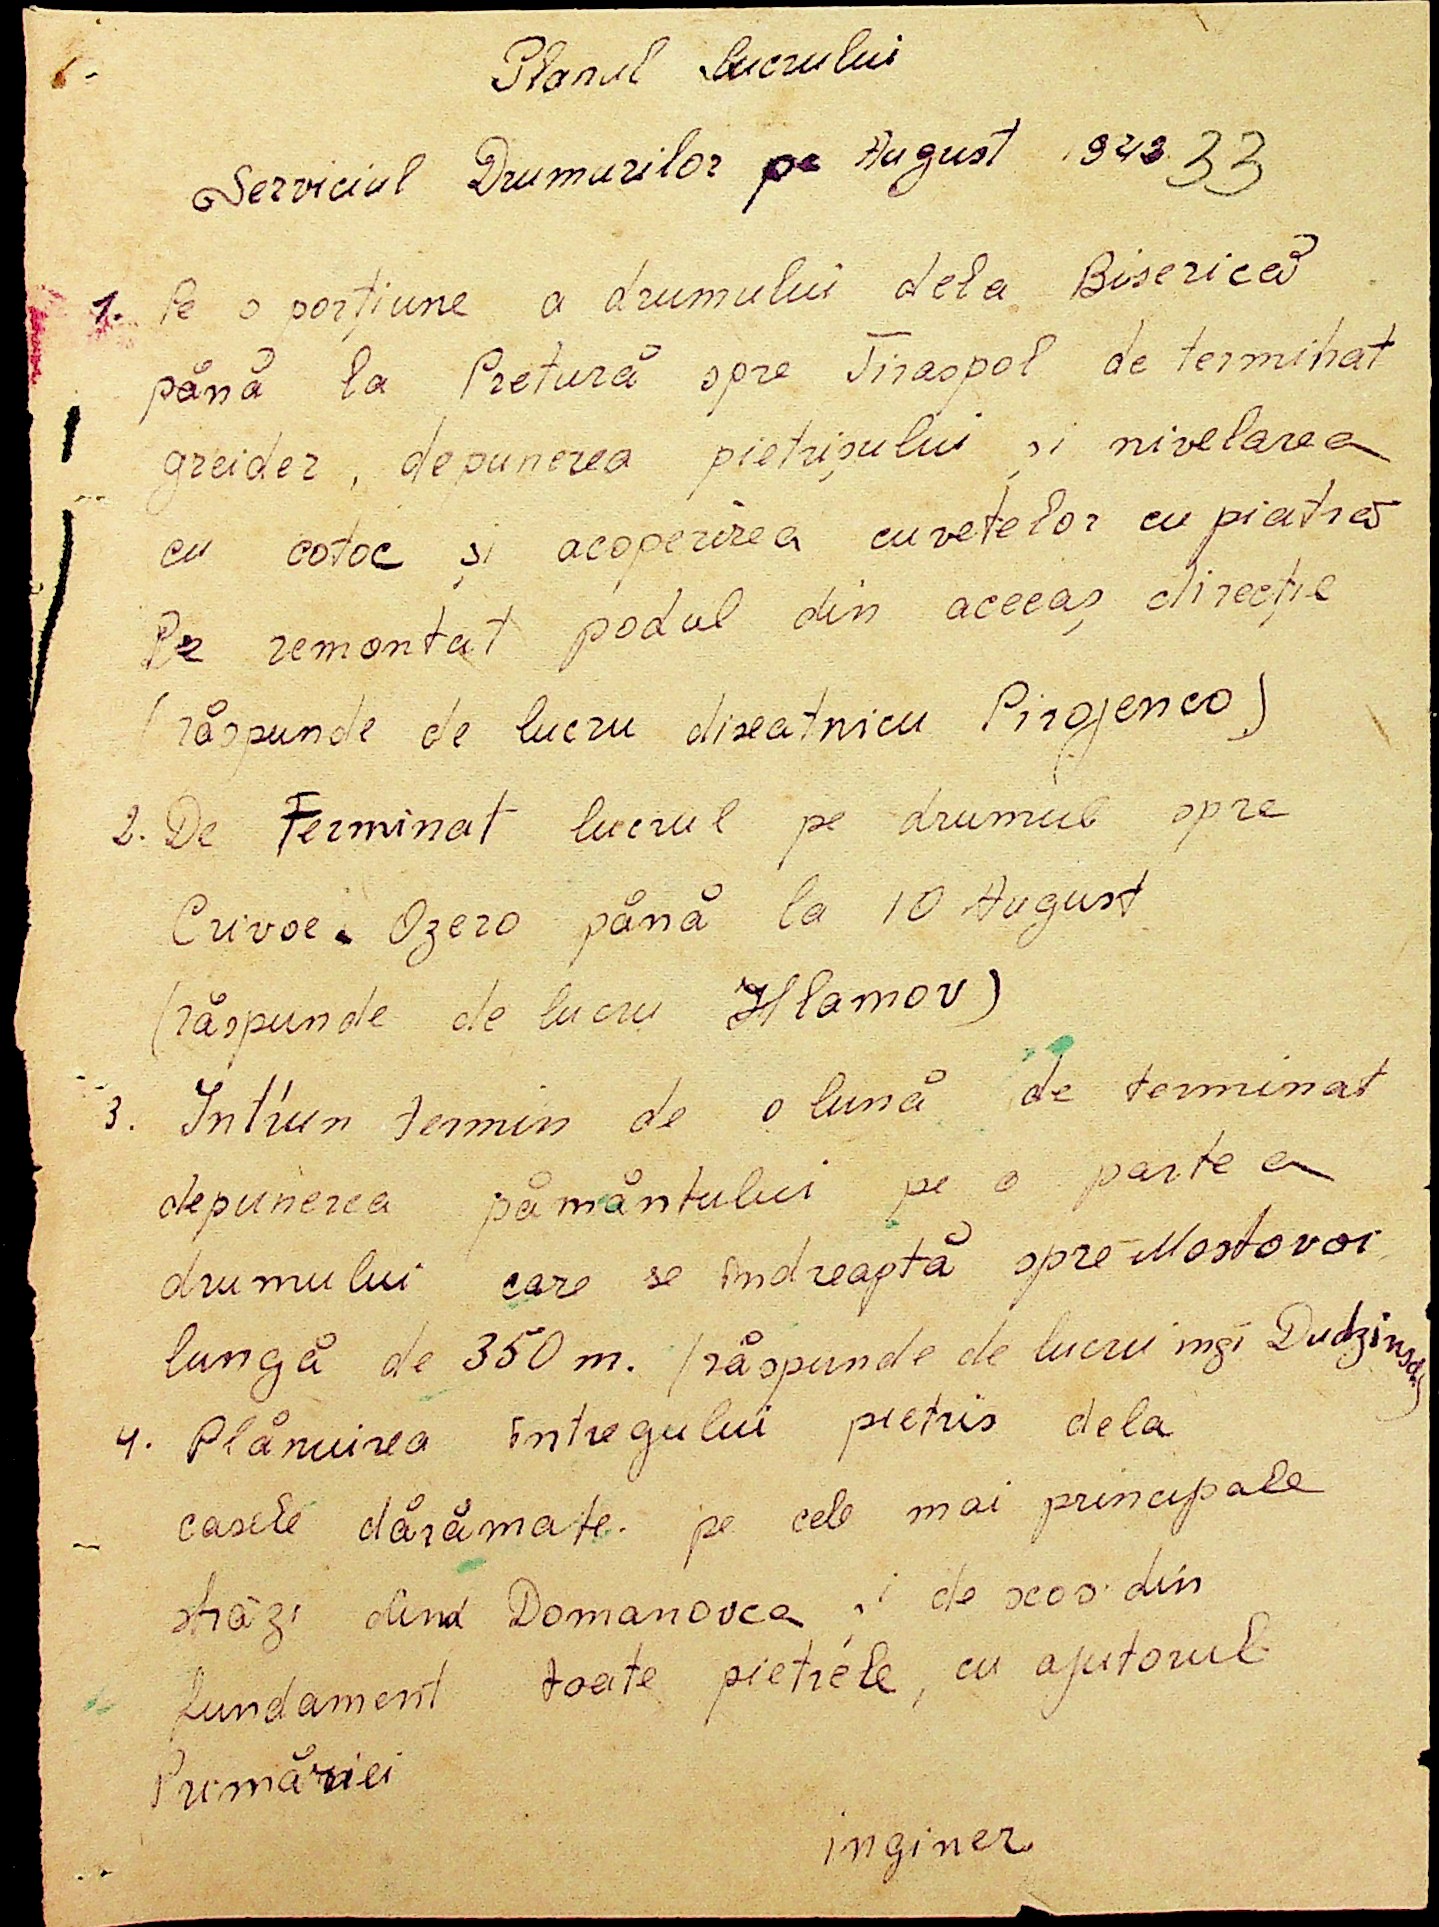 Planul lucrului
Serviciul Drumurilor pe August 1943 33
1. Pe o porțiune a drumului dela Biserică
până la Pretură spre Tiraspol de terminat
greider, depunerea pietrișului și nivelarea
cu cotoc și acoperirea cuvetelor cu piatră
De remontat podul din aceeaș direcție
(răspunde de lucru diseatnicu Pirojenco)
2. De Terminat lucrul pe drumul spre
Crivoe. Ozero până la 10 August
(răspunde de lucru Hlamov)
3. Într'un termin de o lună de terminat
depunerea pământului pe o parte a
drumului care se îndreaptă spre Mostovoi
lungă de 350 m. (răspunde de lucru ingi
4. Plănuirea întregului pietris dela
casele dărămate. pe cele mai principale
străzi dină Domanovca și de scos din
fundament toate pietrele, cu ajutorul
Primăriei
inginer